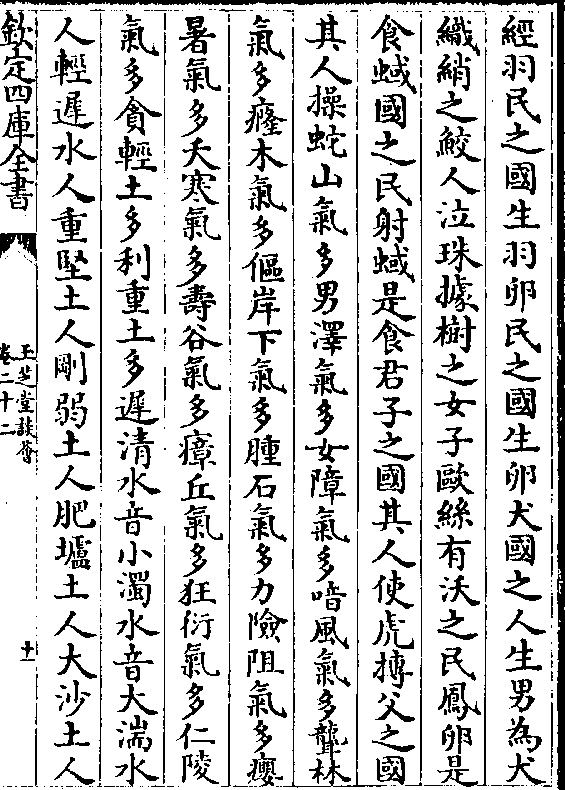 經羽民之國生羽卵民之國生卵犬國之人生男為犬
織綃之鮫人泣珠據樹之女子歐絲有沃之民鳳卵是
食蜮國之民射蜮是食君子之國其人使虎搏父之國
其人操蛇山氣多男澤氣多女障氣多喑風氣多聾林
氣多癃木氣多傴岸下氣多腫石氣多力險阻氣多癭
暑氣多夭寒氣多壽谷氣多痺丘氣多狂衍氣多仁陵
氣多貪輕土多利重土多遲清水音小濁水音大湍水
人輕遲水人重堅土人剛弱土人肥壚土人大沙土人
欽定四庫全書
玉芝堂談薈
卷二十二
十一